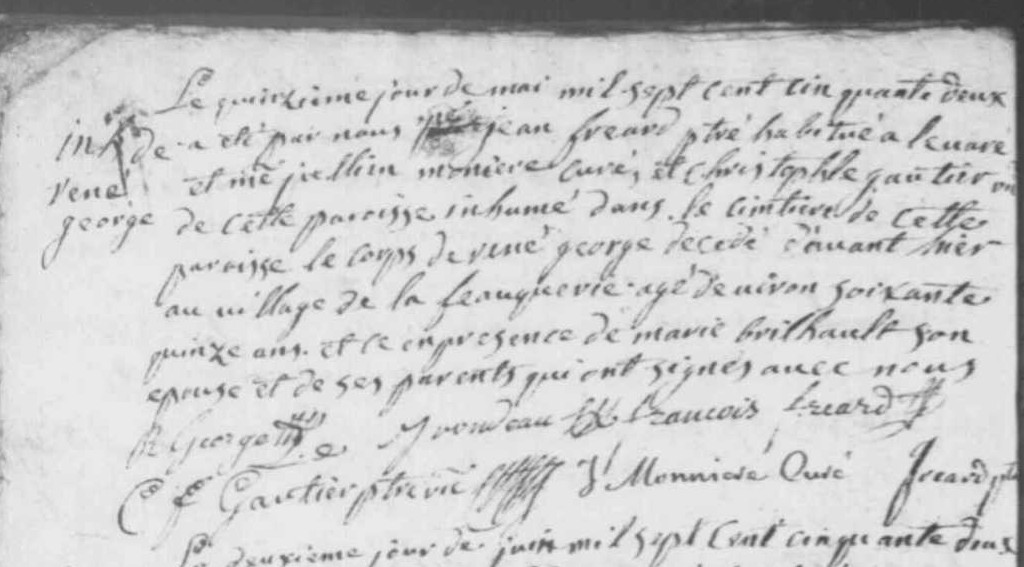 Le quinzieme jour de mai mil sept cent cinquante deux
inh de
a eté par nous jean freard ptre habitué a
rené
et me monière curé, et Christophle gautier
george
de cette paroisse inhumé dans le cimtiere de cette
paroisse le corps de rené george decedé d'avant hier
au village de la feauquerie agé denviron soixante
quinze ans. et ce enpresence de marie brilhault son
epouse et de ses parents qui ont signés avec nous
R George francois freard
C f Gautier ptre J Monniere Curé freard ptre
Le deuxieme jour de juin mil sept Cent cinquante deux